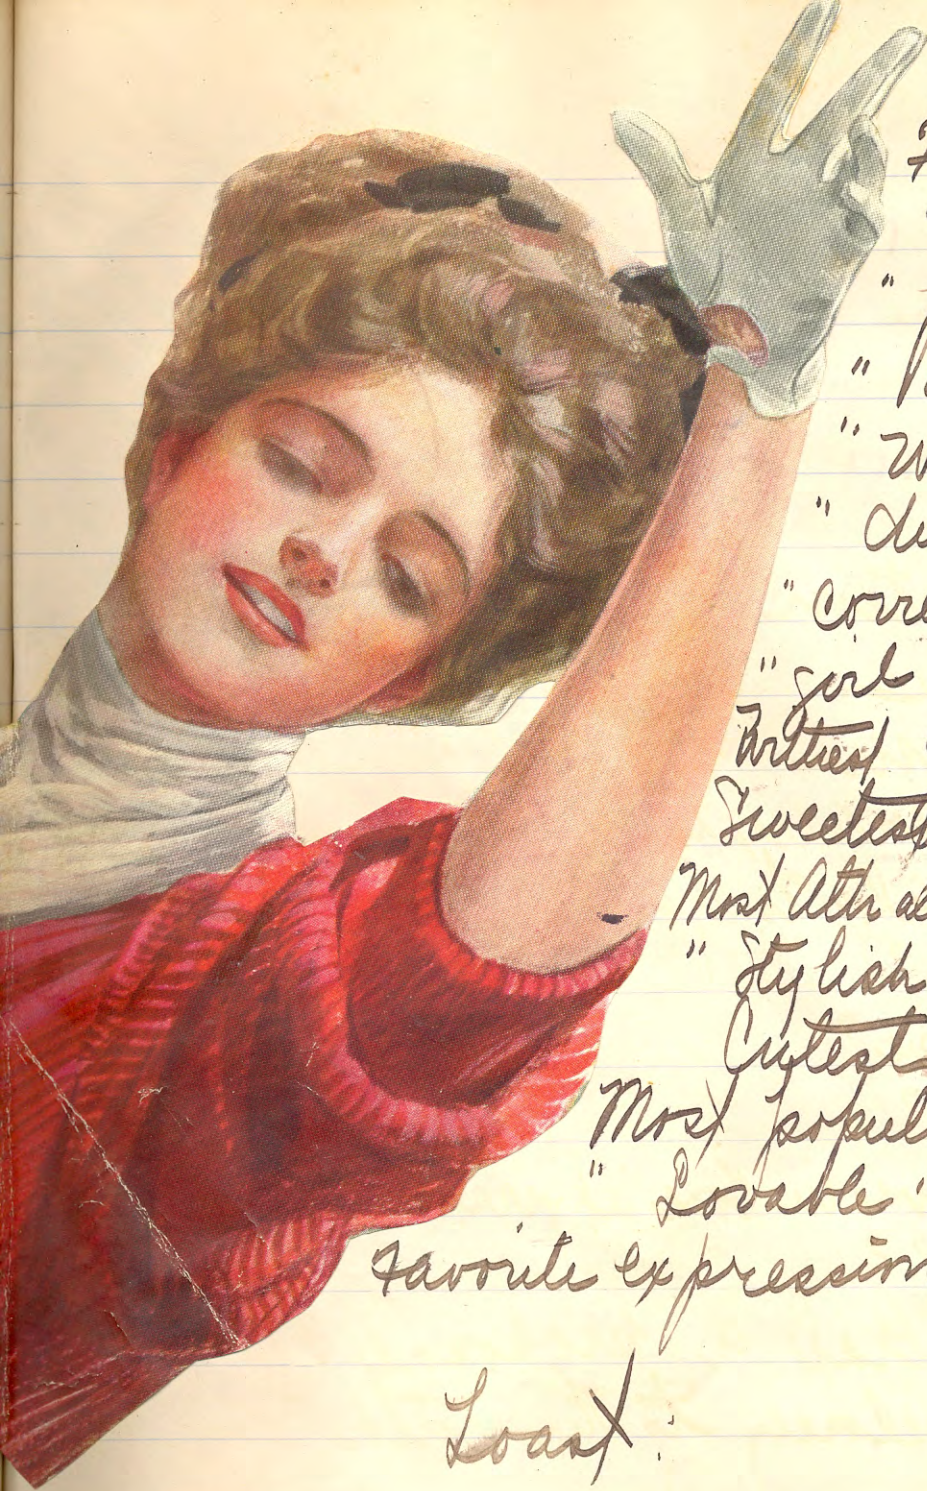 "
"
"
"
" corre
" girl
Sweetest
Most Attrac
" Stylish
Cutest
Most popul
" Lovable "
Favorite expression
Toast :